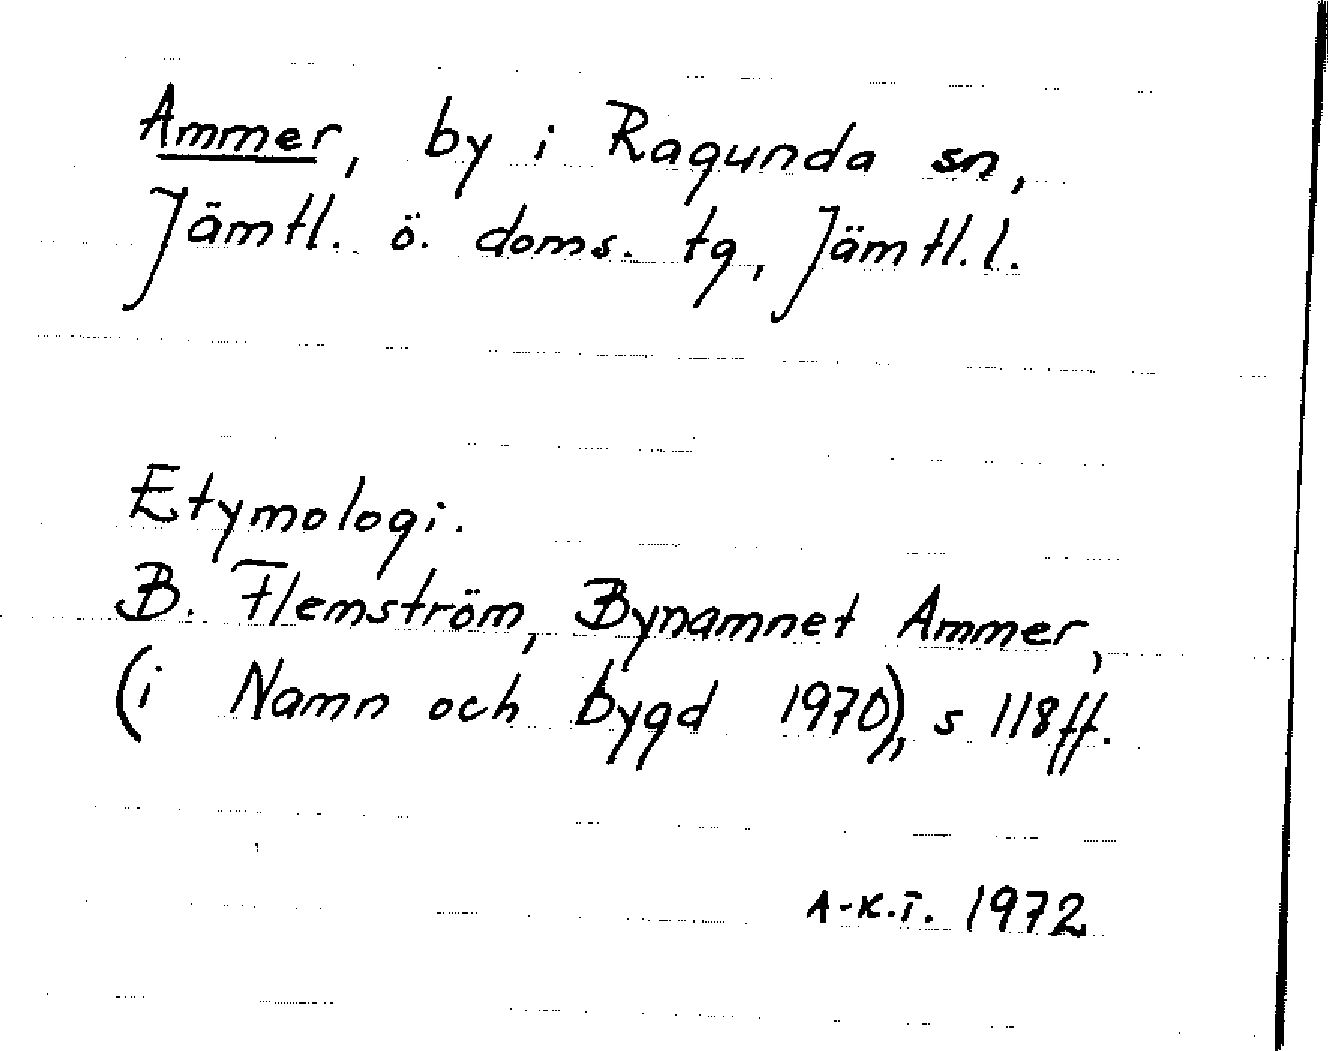 Ammer, by i Ragunda sn,
Jämtl. ö. doms. tg, Jämtl. l.
Etymologi.
B. Flemström, Bynamnet Ammer,
(i Namn och bygd 1970), s 118 ff.
A-K.T. 1972